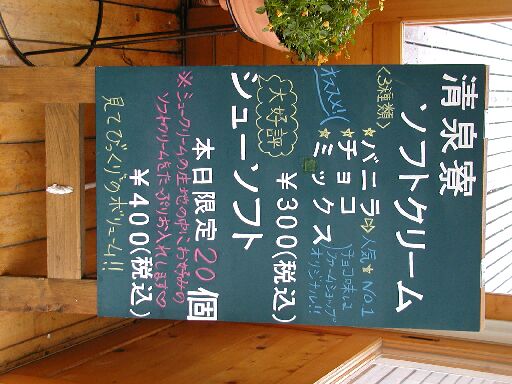 清泉寮
ソフトクリーム
〈3種類〉
★バニラ⇨人気★NO.1
★チョコ
チョコ味は
ファームショップ
オリジナル!!
オススメ!
★ミックス
¥300(税込)
大好評
シューソフト
本日限定20個
※シュークリームの生地の中にお好みの
ソフトクリームをたっぷりお入れします♡
¥400(税込)
見てびっくりのボリューム!!